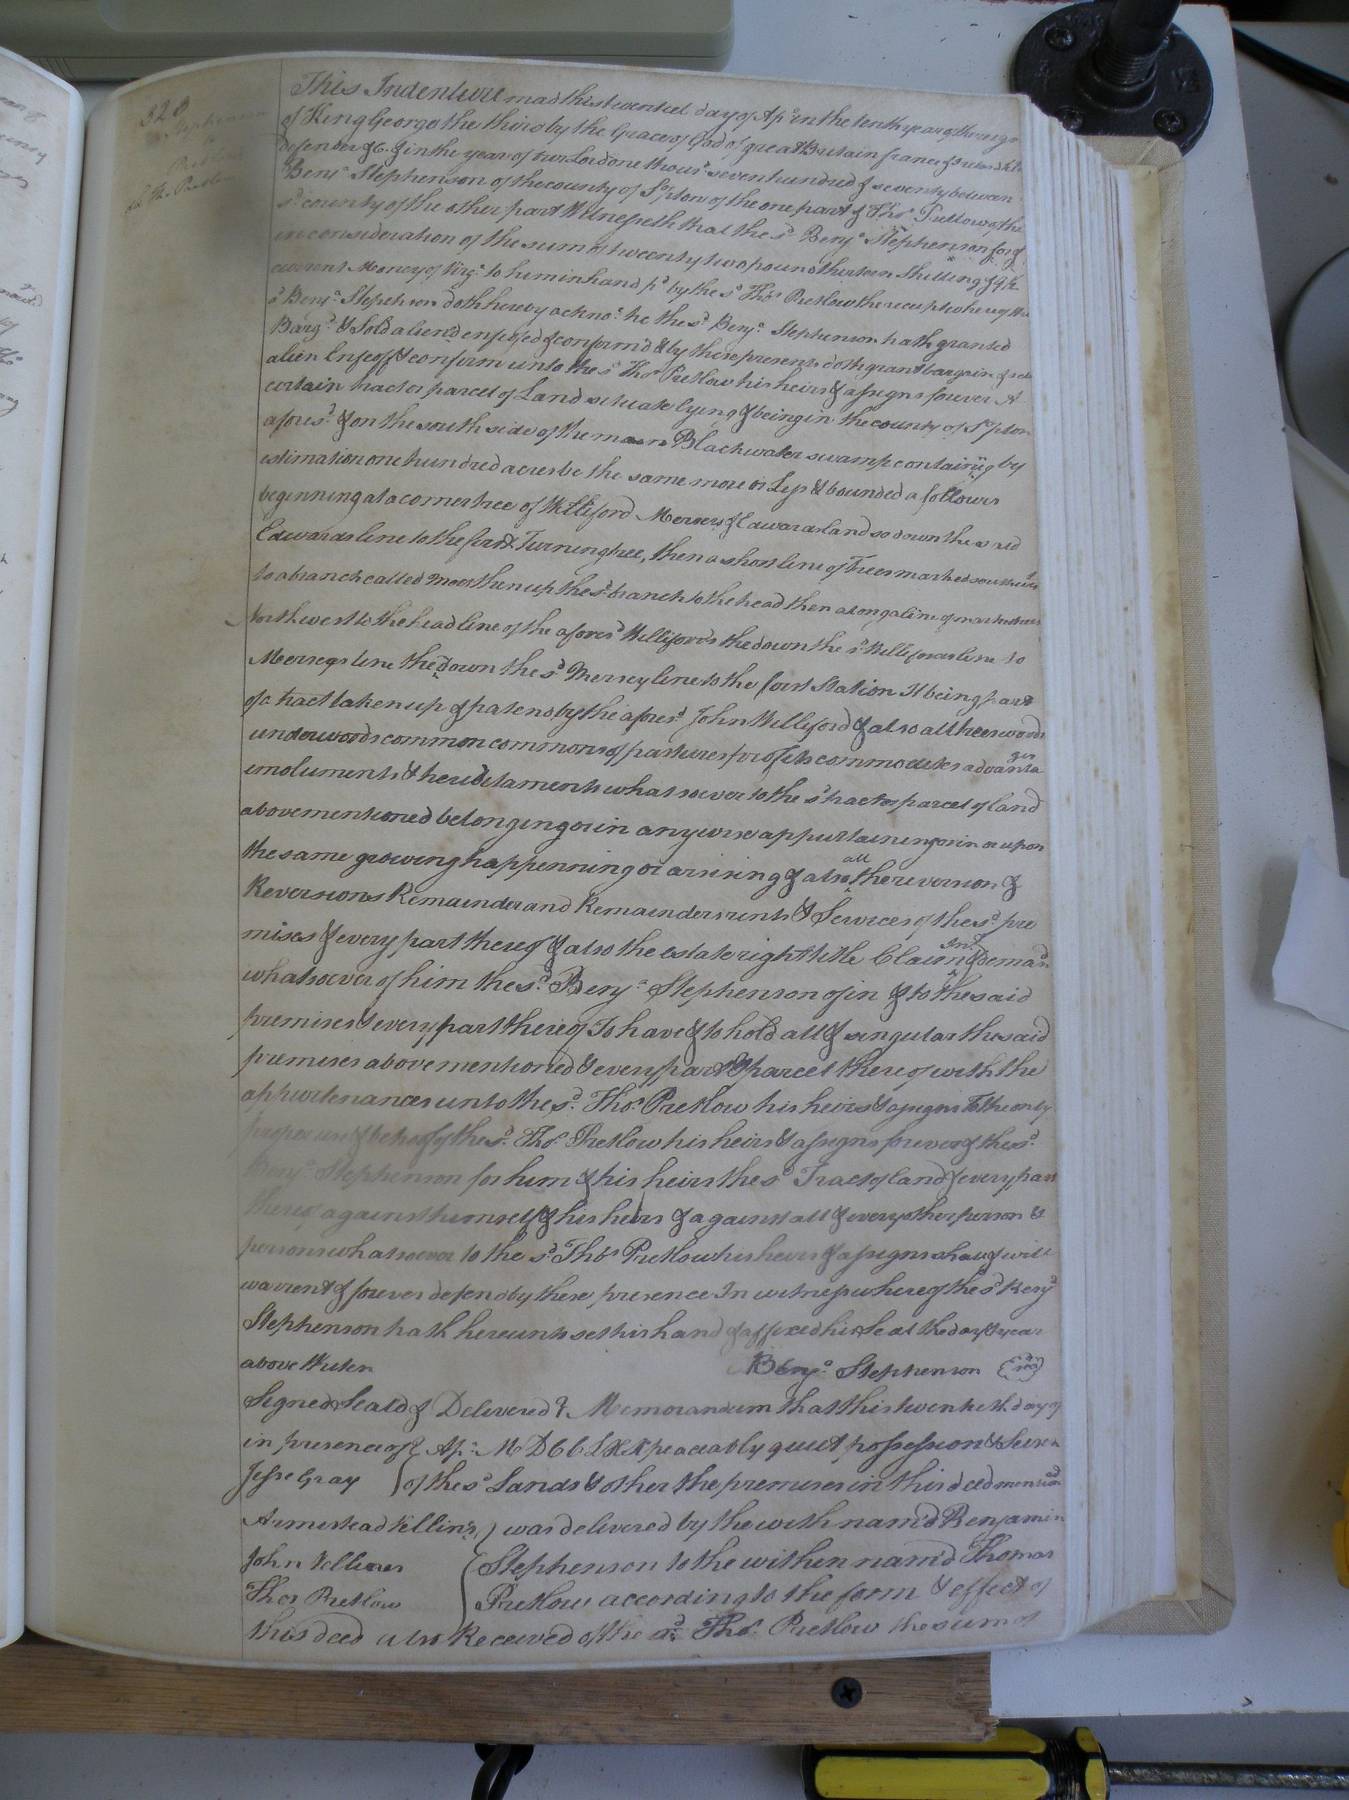 328
Stephenson
to
Pretlow
dd Th. Pretlow
This Indenture mad this twentieth day of Apl in the tenth year of the reign
of King George the third by the Grace of God of great Britain france & Ireland King
defender &c. & in the year of our Lord one thous.d seven hundred & seventy between
Benj.a Stephenson of the county of S.o pton of the one part & Tho.s Pretlow of the
s.d county of the other part Witnesseth that the s.d Benj.a Stephenson for &
in consideration of the sum of twenty two pound thirteen Shilling &
current Money of Virg.a to him in hand p.d by the s.d Tho.s Pretlow the receipt whereof the
s.d Benj.a Stepehson doth hereby ackno.e he the s.d Benj.a Stephenson hath granted
Barg.d & Sold aliend enfeofed & confirm'd & by these presents doth grant bargain & sell
alien Enfeoff & confirm unto the s.d Tho.s Pretlow his heirs & assigns forever A
certain tract or parcel of Land situate lying & being in the county of S.o pton
afores.d & on the south side of the main Blackwater swamp containing by
estimation one hundred acres be the same more or Less & bounded a follows
beginning at a corner tree of Williford Merreys & Edwards land so down the said
Edwards line to the first Turning tree, then a short line of Trees marked
to a branch called then up the s.d branch to the head then along a line of marked trees
Northwest to the head line of the afores.d Williford's the down the s.d Willifords line to
Merreys line the down the s.d Merrey line to the first Station It being part
of a tract taken up & patend by the afores.d John Williford & also all trees woods
underwoods common commons of pastures profits commodites advanta
ges
emoluments & heriditaments whatsoever to the s.d tract or parcel of land
above mentioned belonging or in any wise appurtaining or in or upon
the same growing happenning or arising & also all the reversion &
Reversions Remainder and Remainders rents & Services of the s.d pre
mises & every part thereof & also the estate right title Claim Int.t & deman
whatsoever of him the s.d Benj.a Stephenson of in & to the said
premises & every part thereof To have & to hold all & singular the said
premises above mentioned & every part & parcel thereof with the
appurtenances unto the s.d Tho.s Pretlow his heirs & assigns To the only
proper use & behoof of the s.d Tho.s Pretlow his heirs & assigns forever & the s.d
Benj.a Stephenson for him & his heirs the s.d Tract of land & every part
thereof against himself & his heirs & against all & every other person &
persons whatsoever to the s.d Tho.s Pretlow his heirs & assigns shall & will
warrent & forever defend by these presence In witness whereof the s.d Benj.a
Stephenson hath hereunto set his hand & affixed his Seal the day & year
above Writen
Benj.a Stephenson
Signed Seal'd & Delivered } Memorandum that this twenteth day of
in presence of } Ap.l M D C C L X X peaceably quiet possession & Seisen
Jesse Gray } of the s.d Lands & other the premises in this deed mentioned
Armestead Vellines } was delivered by the with nam'd Benjamin
John Vellines { Stephenson to the within nam'd Thomas
Thos Pretlow { Pretlow according to the form & effect of
this deed also Received of the s.d Tho.s Pretlow the sum of